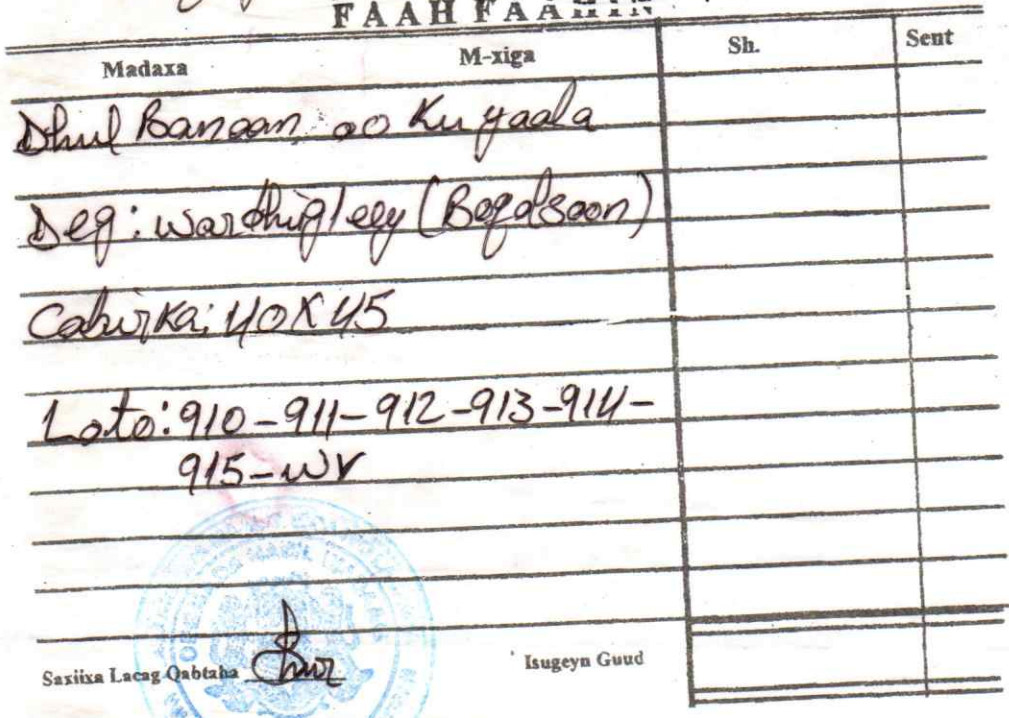 FAAH FAAHIN
Madaxa M-xiga Sh. Sent
Dhul Banaan oo Ku yaala
Deg: wardhigleey (Beqalsoon)
Cabirka: 40X45
Loto: 910-911-912-913-914-
915-WV
Saxiixa Lacag Qabtaha Isugeyn Guud